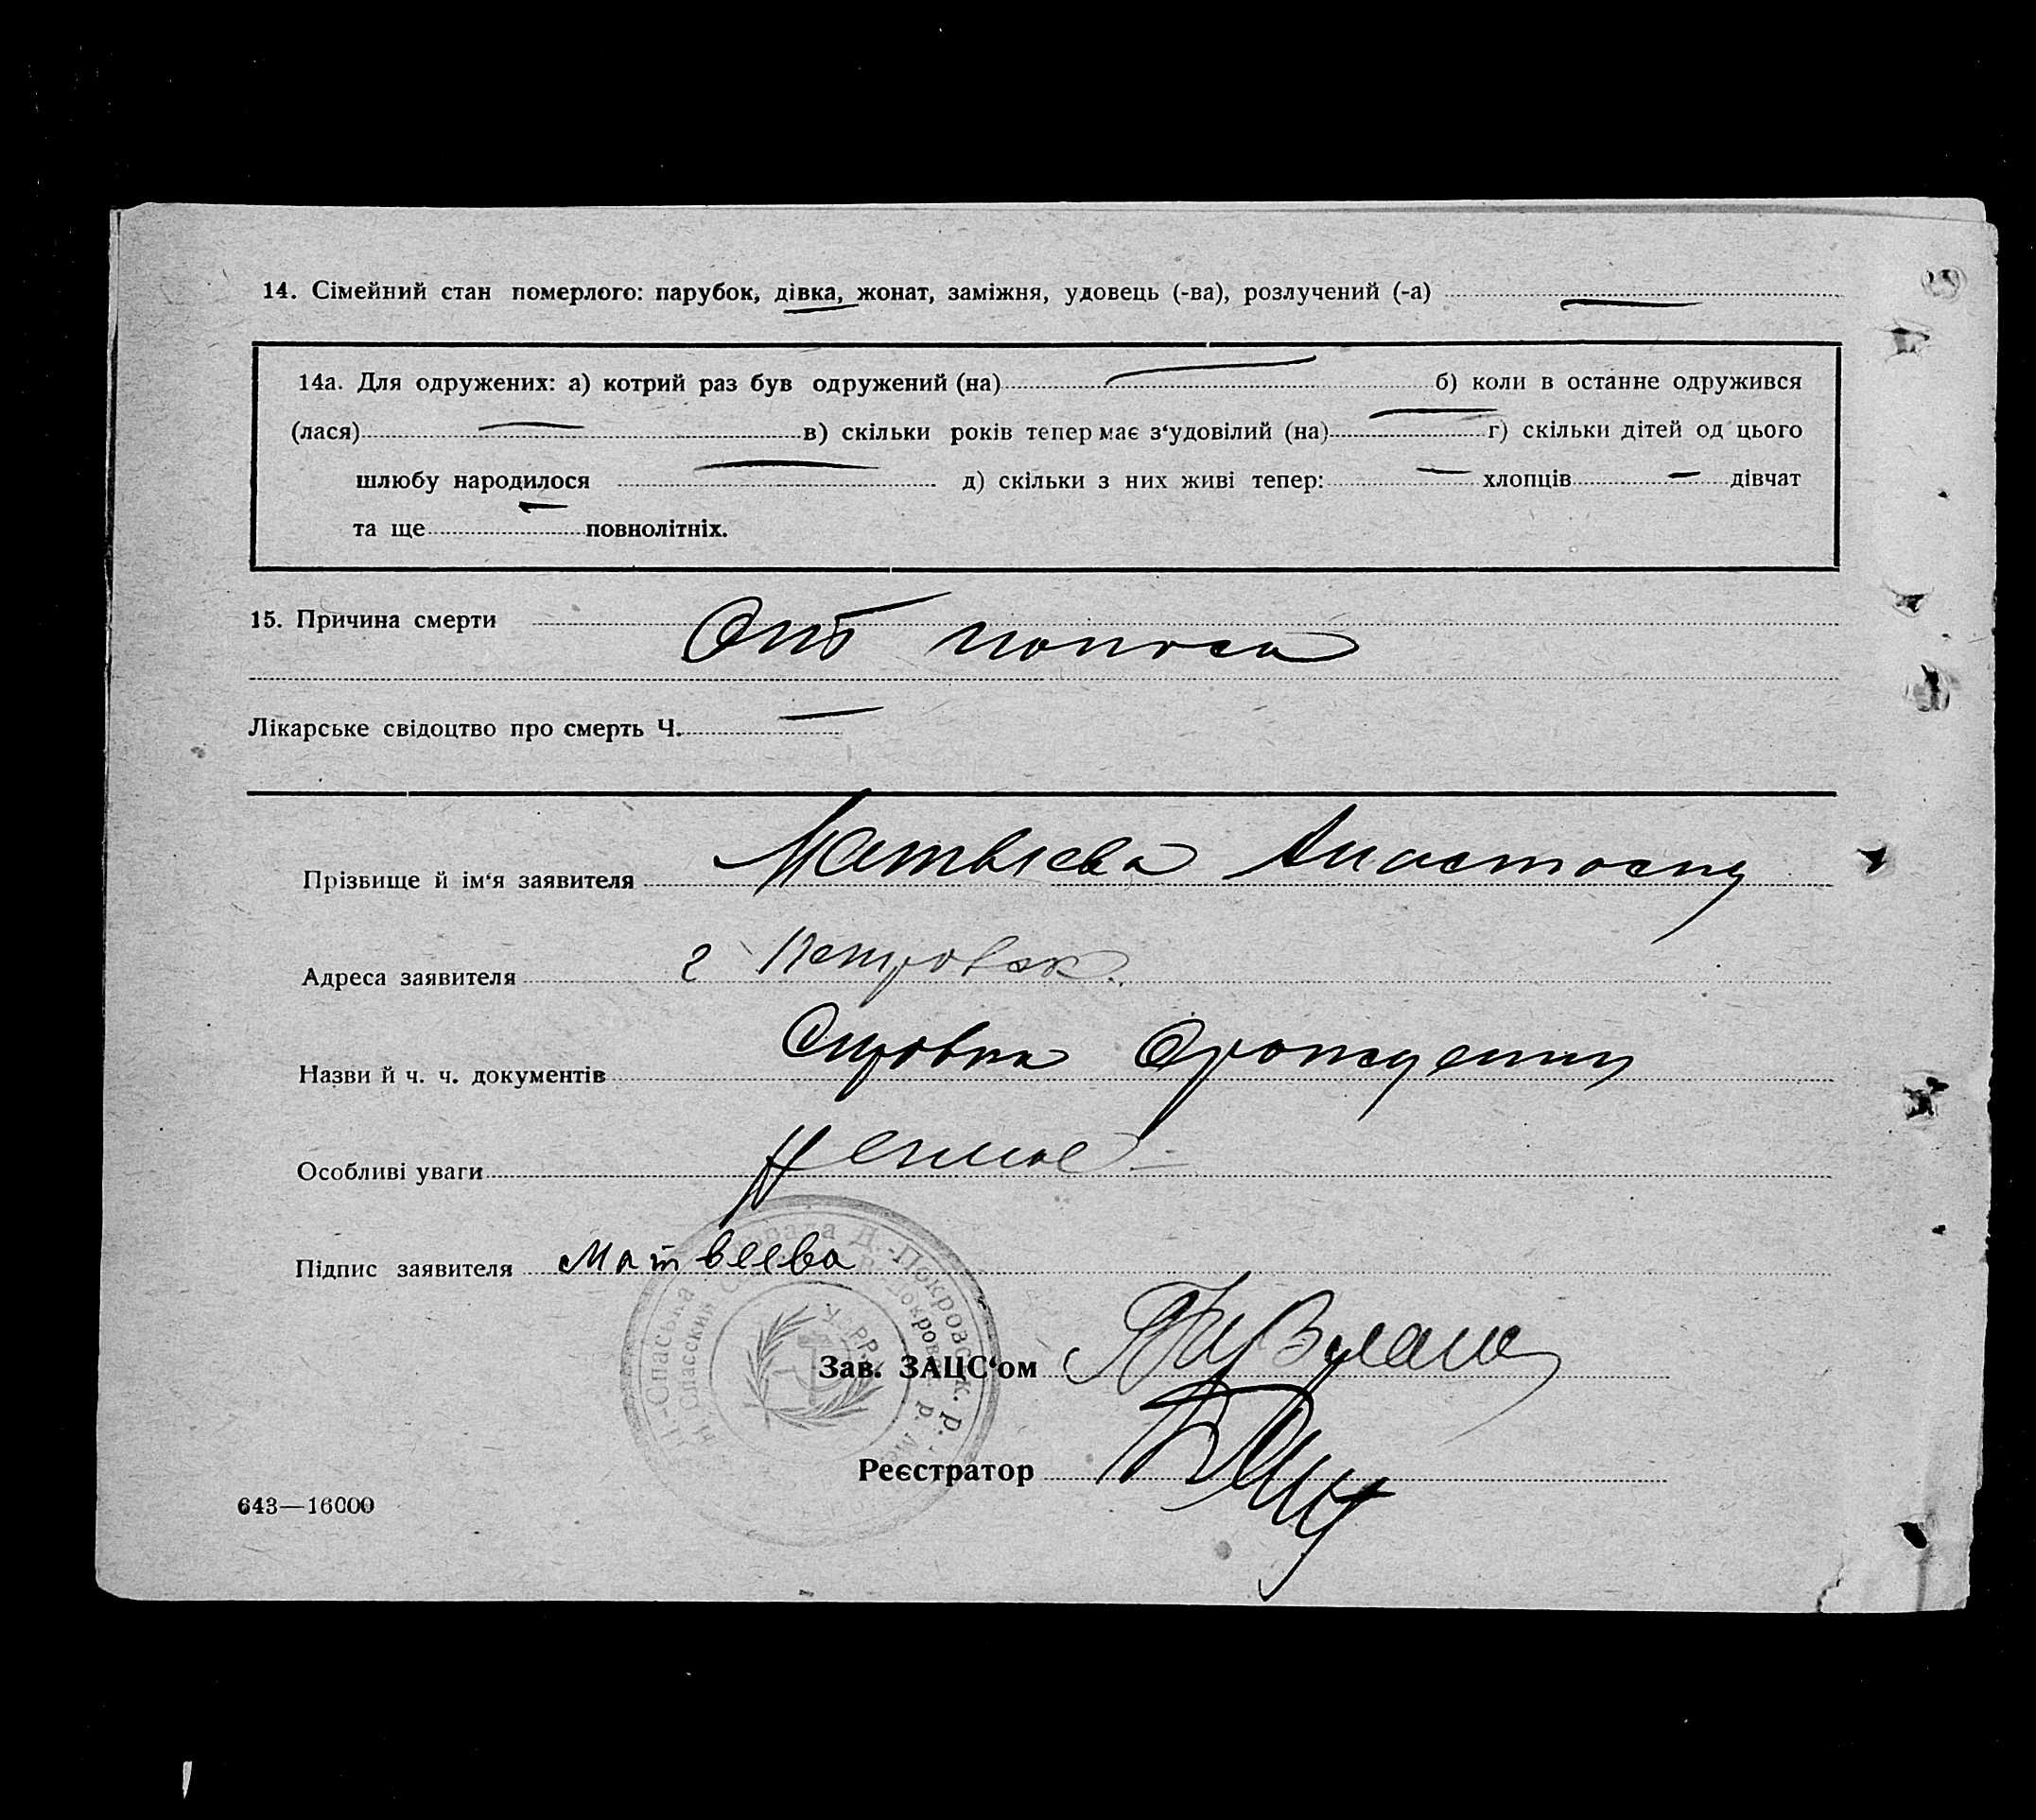 14. Сімейний стан померлого: парубок, дівка, жонат, заміжня, удовець (-ва), розлучений (-а)
14а. Для одружених: а) котрий раз був одружений (на) б) коли в останне одружився
(лася) в) скільки років тепер має з‘удовілий (на) г) скільки дітей од цього
шлюбу народилося д) скільки з них живі тепер: хлопців дівчат
та ще повнолітніх.
15. Причина смерти От поноса
Лікарське свідоцтво про смерть Ч.
Прізвище й ім‘я заявителя Матвієва Анастасия
Адреса заявителя г Петровск.
Назви й ч. ч. документів Справка Орождении
Особливі уваги
Підпис заявителя Матвеева
Зав. ЗАЦС‘ом
Реєстратор
643—16000